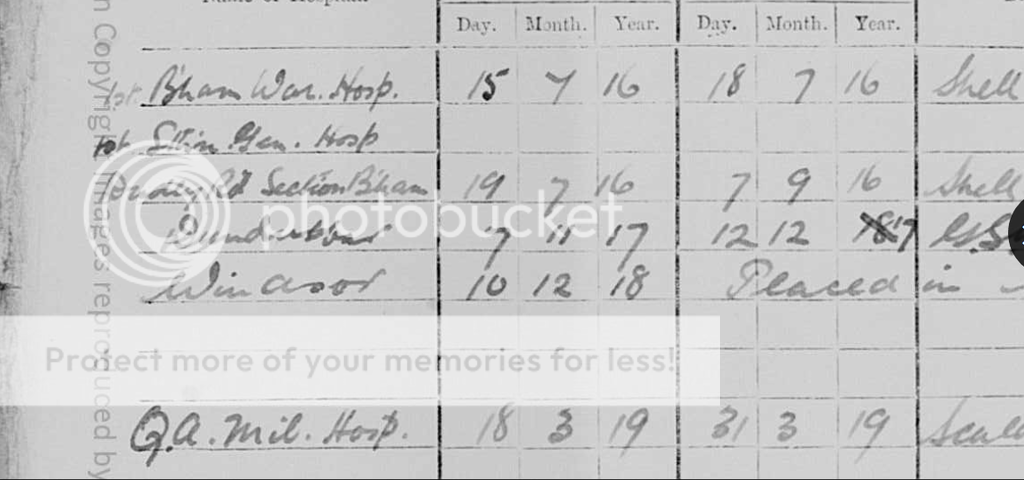 Name of Hospital.
Day. Month. Year. Day. Month. Year.
1st B'ham War. Hosp. 15 7 16 18 7 16 Shell
Gen. Hosp
Rd Section B'ham 19 7 16 7 9 16 Shell
7 11 17 12 12 17 G.S.
Windsor 10 12 18 Placed in
Q.A. Mil. Hosp. 18 3 19 31 3 19
photobucket
Protect more of your memories for less!
Copyright Images reproduced by